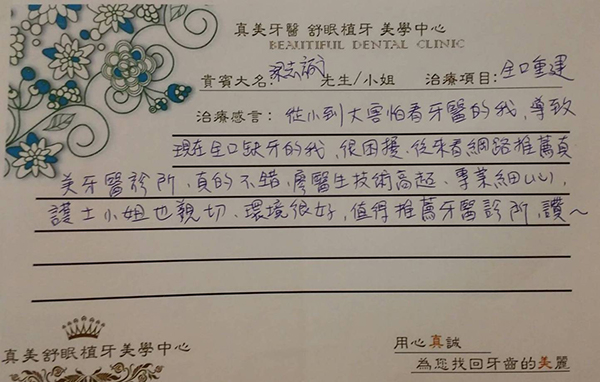 真美牙醫 舒眠植牙 美學中心
BEAUTIFUL DENTAL CLINIC
貴賓大名: 梁志 先生/小姐 治療項目: 全口重建
治療感言: 從小到大害怕看牙醫的我,導致
現在全口缺牙的我,很困擾、從來看網路推薦真
美牙醫診所,真的不錯,廖醫生技術高超、專業細心,
護士小姐也親切、環境很好,值得推薦牙醫診所,讚~
真美舒眠植牙美學中心
用心真誠
為您找回牙齒的美麗